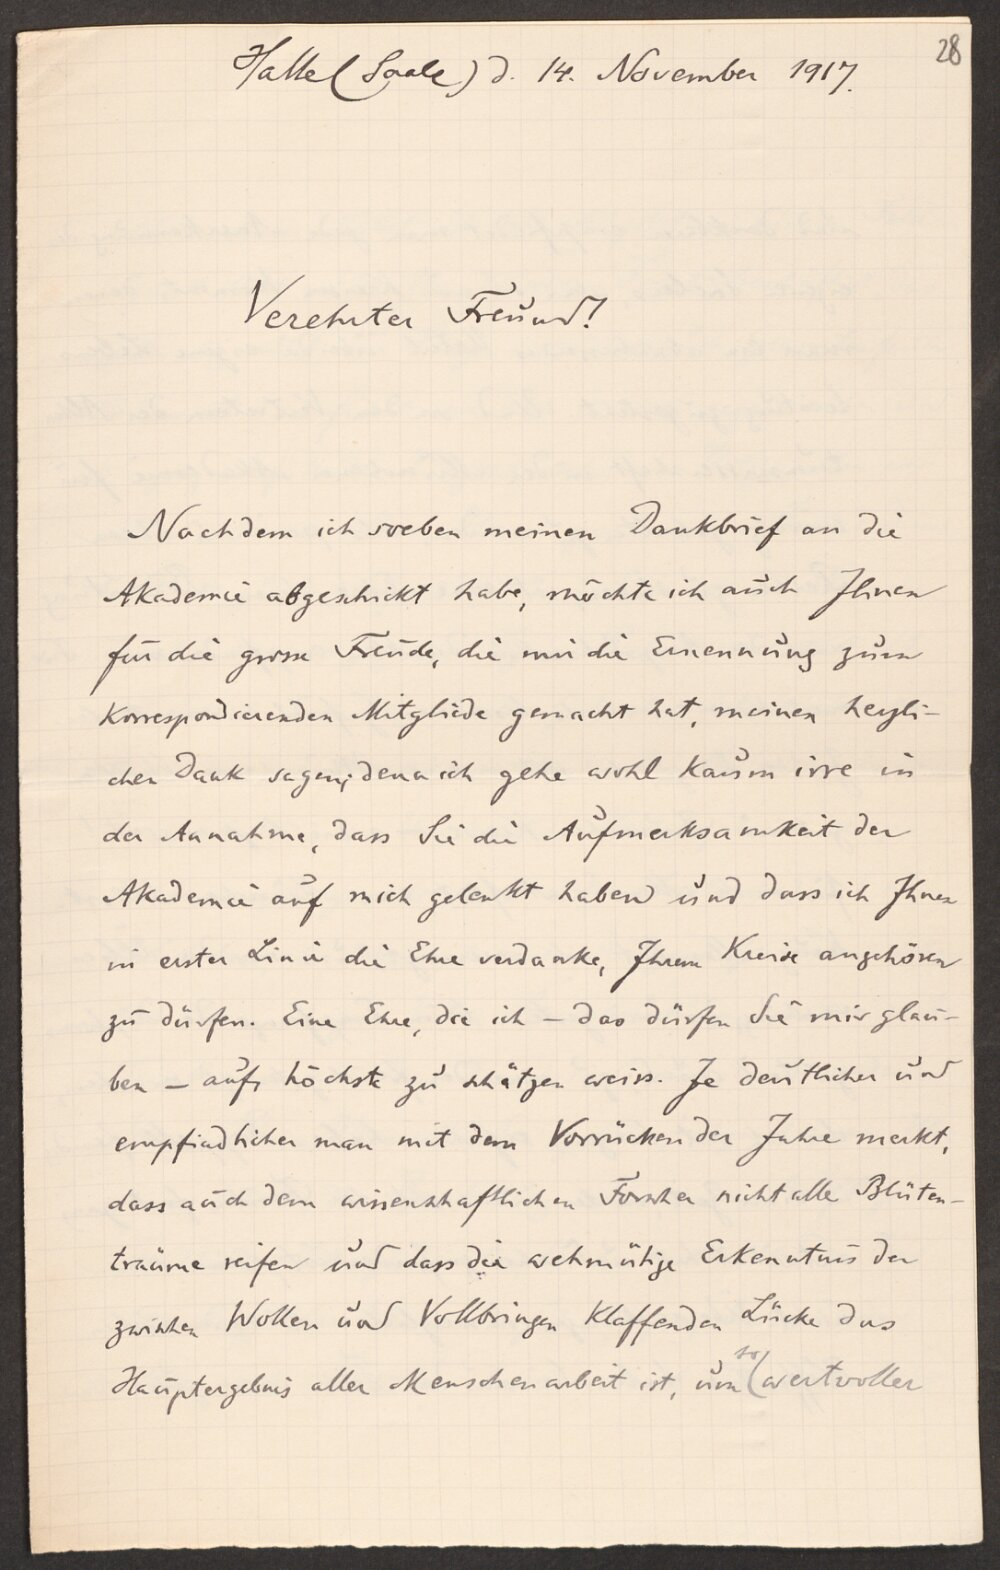 28
Halle (Saale) d. 14. November 1917.
Verehrter Freund!
Nachdem ich soeben meinen Dankbrief an die
Akademie abgeschickt habe, möchte ich auch Ihnen
für die grosse Freude, die mir die Ernennung zum
Korrespondierenden Mitgliede gemacht hat, meinen herzli-
chen Dank sagen; denn ich gehe wohl kaum irre in
der Annahme, dass Sie die Aufmerksamkeit der
Akademie auf mich gelenkt haben und dass ich Ihnen
in erster Linie die Ehre verdanke, Ihrem Kreise angehören
zu dürfen. Eine Ehre, die ich – das dürfen Sie mir glau-
ben – aufs höchste zu schätzen weiss. Je deutlicher und
empfindlicher man mit dem Vorrücken der Jahre merkt,
dass auch dem wissenschaftlichen Forscher nicht alle Blüten-
träume reifen und dass die wehmütige Erkenntnis der
zwischen Wollen und Vollbringen klaffenden Lücke das
Hauptergebnis aller Menschenarbeit ist, um so wertvoller